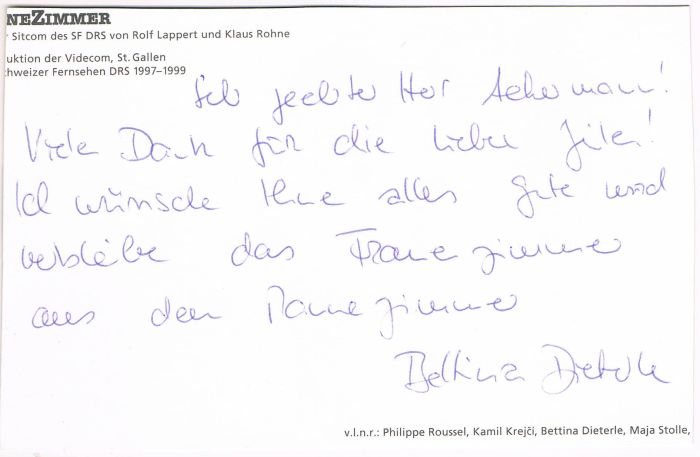 NEZIMMER
r Sitcom des SF DRS von Rolf Lappert und Klaus Rohne
uktion der Videcom, St. Gallen
chweizer Fernsehen DRS 1997–1999
geehrter Herr Ackermann!
Viele Dank für die liebe Zilen!
Ich wünsche Ihne alles gute und
verbleibe das Frauezimmer
aus dem Mannezimmer
Bettina Dieterle
v.l.n.r.: Philippe Roussel, Kamil Krejčí, Bettina Dieterle, Maja Stolle,